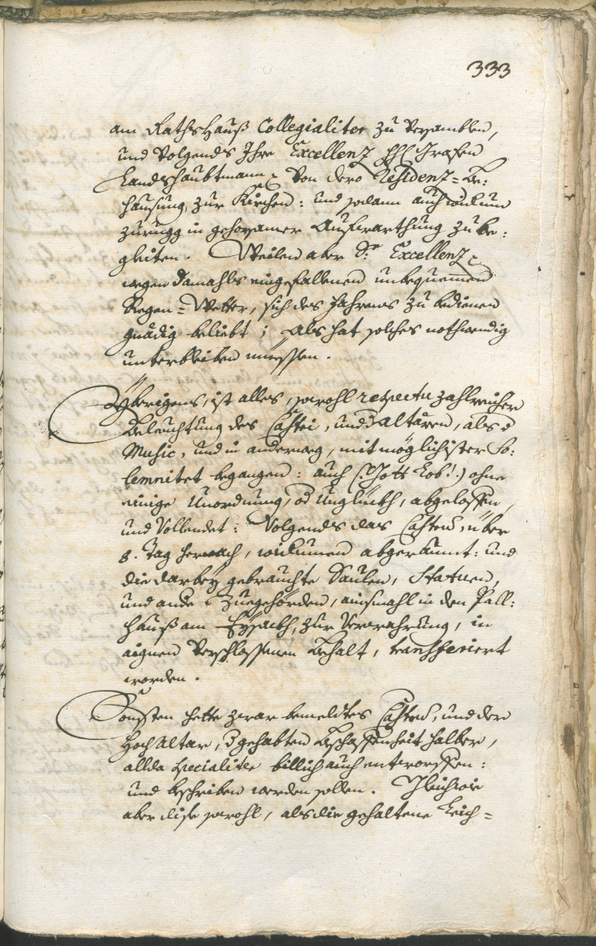 333
am RathsHauß Collegialiter zu Versamblen,
und Volgends Ihre Excellenz Grafen
Landshaubtmann Von dero Residenz-Be:
hausung, zur Kürchen: und sodann auch widerum
zurugg in gehorsamer Aufwarthung zu be:
gleiten. Weilen aber Sr. Excellenz
wegen damahls eingefallenen unbequemen
Regen-Wetter, sich des fahrens zu bedienen
gnädig beliebt; als hat solches nothwendig
unterbleiben müessen.
Übrigens, ist alles, sowohl respectu zahlreicher
Beleuchtung des Castri, und altären, als
Music, und in anderweg, mit möglichister So:
lemnitet begangen: auch (: Gott Lob! :) ohne
einige Unordnung, od Unglückh, abgeloffen,
und Vollendet: Volgends das Castrum, über
8. Tag hernach, widerumen abgeraumt: und
die darbey gebrauchte Saulen, Statuen,
und ande Zuegehörden, ainsmahl in den Pall:
hauß am Eysackh, zur Verwahrung, in
aignen Verschlossenen Behalt, transferiert
worden.
Sonsten hette zwar bemeltes Castrum, und der
Hoch Altar, gehabten Beschaffenheit halber,
allda specialiter billich auch entworffen:
und beschriben werden sollen. Gleichwie
aber dise sowohl, als die gehaltene Leich-